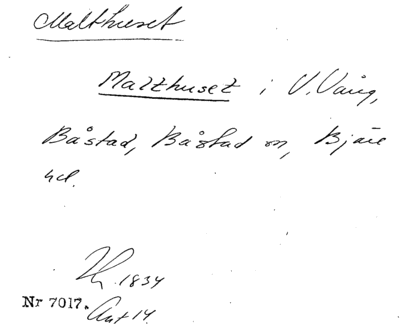 Malthuset
Malthuset i V. Vång,
Båstad, Båstad sn, Bjäre
hd.
1834
Nr 7017. Akt 14.